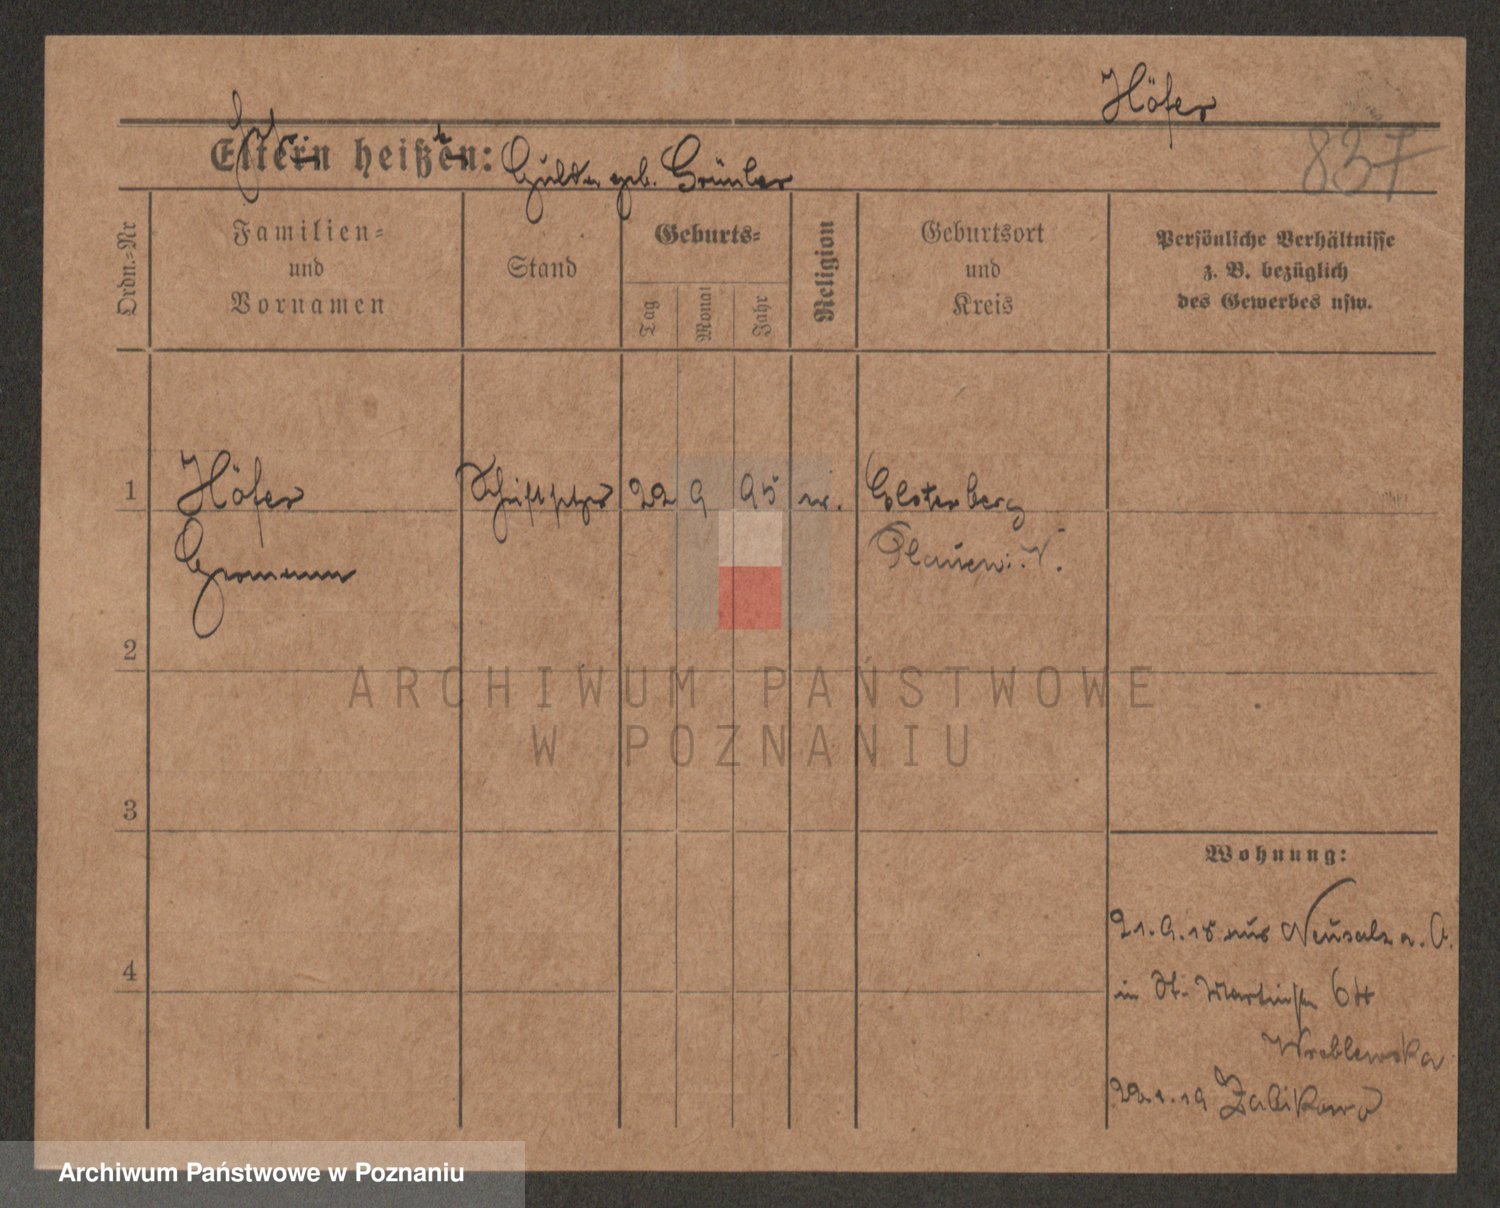 Höfer
837
Eltern heißen: Hulda geb. Grünler
Ordn.-Nr
Familien-
und
Vornamen
Stand
Geburts-
Tag
Monat
Jahr
Religion
Geburtsort
und
Kreis
Persönliche Verhältnisse
z. B. bezüglich
des Gewerbes usw.
1
Höfer
Schriftsetzer
22
9
95
ev.
Elsterberg
Hermann
Plauen i. V.
2
ARCHIWUM PAŃSTWOWE
W POZNANIU
3
Wohnung:
21.9.18 aus Neusalz a. O.
4
in St. Martinstr 64
Wroblewska
22.1.19 Zabikowo
Archiwum Państwowe w Poznaniu